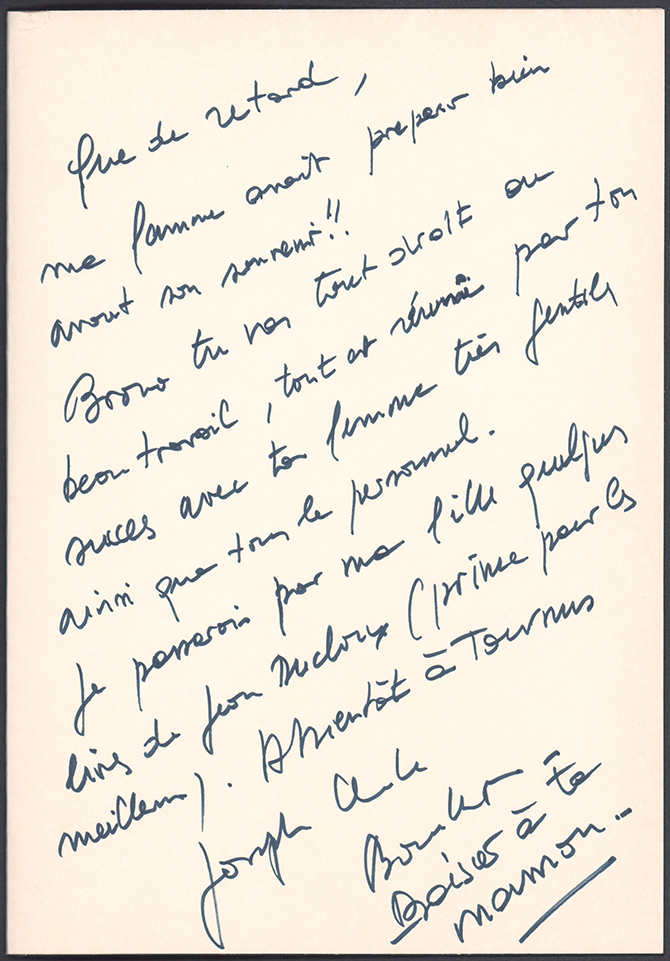 Que de retard,
ma femme avait preparer bien
avant son souvenir!!
Bravo tu vas tout droit au
beau travail, tout est réunis par ton
succes avec ta femme très gentils
ainsi que tous le personnel.
Je passerais par ma fille quelques
livres de Jean Ducloux (prime pour les
meilleurs). A bientôt à Tournus
Joseph
Baises à ta
maman.-